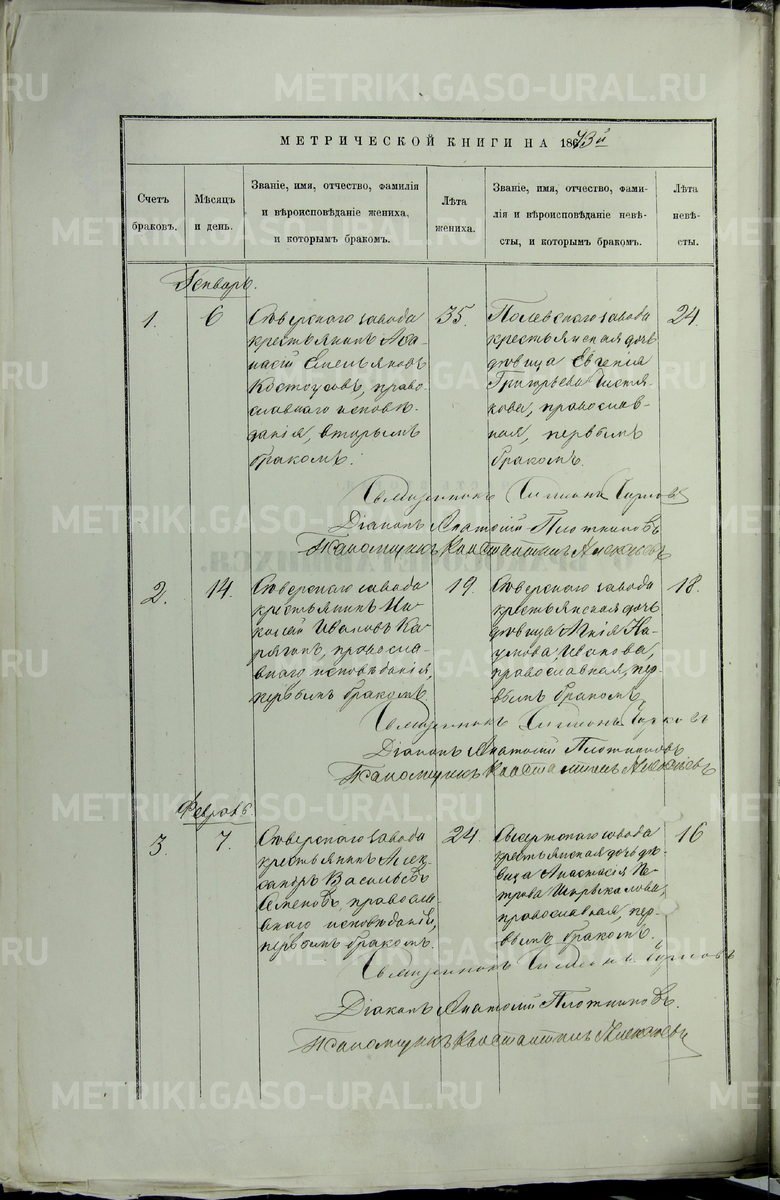 МЕТРИЧЕСКОЙ КНИГИ НА 1873й
Счетъ браковъ.
Мѣсяцъ и день.
Званіе, имя, отчество, фамилія
и вѣроисповѣданіе жениха,
и которымъ бракомъ.
Лѣта жениха.
Званіе, имя, отчество, фами-
лія и вѣроисповѣданіе невѣ-
сты, и которымъ бракомъ.
Лѣта невѣ-
сты.
Генварь.
1.
6
Сѣверскаго завода
крестьянинъ Аѳа-
насій Емельяновъ
Костоусовъ, право-
славнаго исповѣ-
данія, вторымъ
бракомъ.
35.
Полевскаго завода
крестьянская дочь
дѣвица Евгенія
Григорьева Шестя-
кова, православ-
ная, первымъ
бракомъ.
24.
Священникъ Симеонъ
Діаконъ Анатолій Плотниковъ
Псаломщикъ Константинъ Алексѣевъ
2.
14.
Сѣверскаго завода
крестьянинъ Ни-
колай Ивановъ Ка-
рягинъ, правосла-
внаго исповѣданія,
первымъ бракомъ.
19.
Сѣверскаго завода
крестьянская дочь
дѣвица Агнія На-
умова Иванова,
православная, пер-
вымъ бракомъ.
18.
Священникъ Симеонъ
Діаконъ Анатолій Плотниковъ
Псаломщикъ Константинъ Алексѣевъ
Февраль.
3.
7.
Сѣверскаго завода
крестьянинъ Алек-
сандръ Васильевъ
Семеновъ, правосла-
внаго исповѣданія,
первымъ бракомъ.
24.
Сысертскаго завода
крестьянская дочь дѣ-
вица Анастасія Пе-
трова Шырыкалова,
православная, пер-
вымъ бракомъ.
16
Священникъ Симеонъ
Діаконъ Анатолій Плотниковъ.
Псаломщикъ Константинъ Алексѣевъ
METRIKI.GASO-URAL.RU